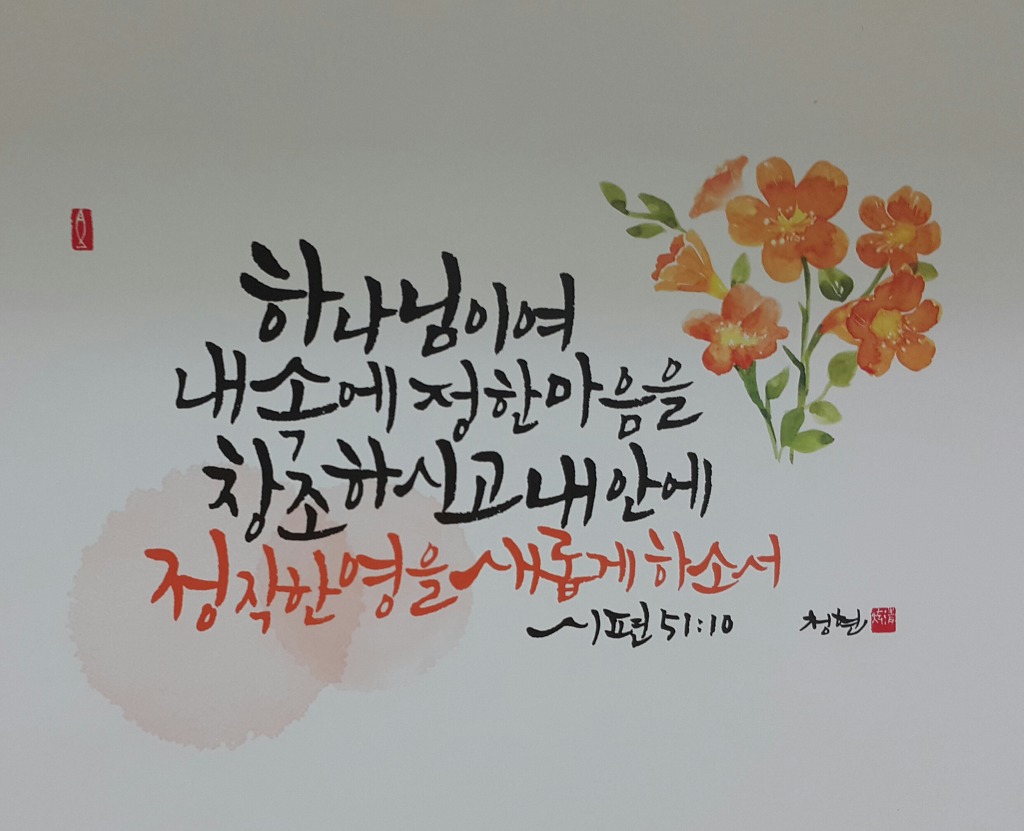 하나님이여
내 속에 정한 마음을
창조하시고 내 안에
정직한 영을 새롭게 하소서
시편 51:10
청현